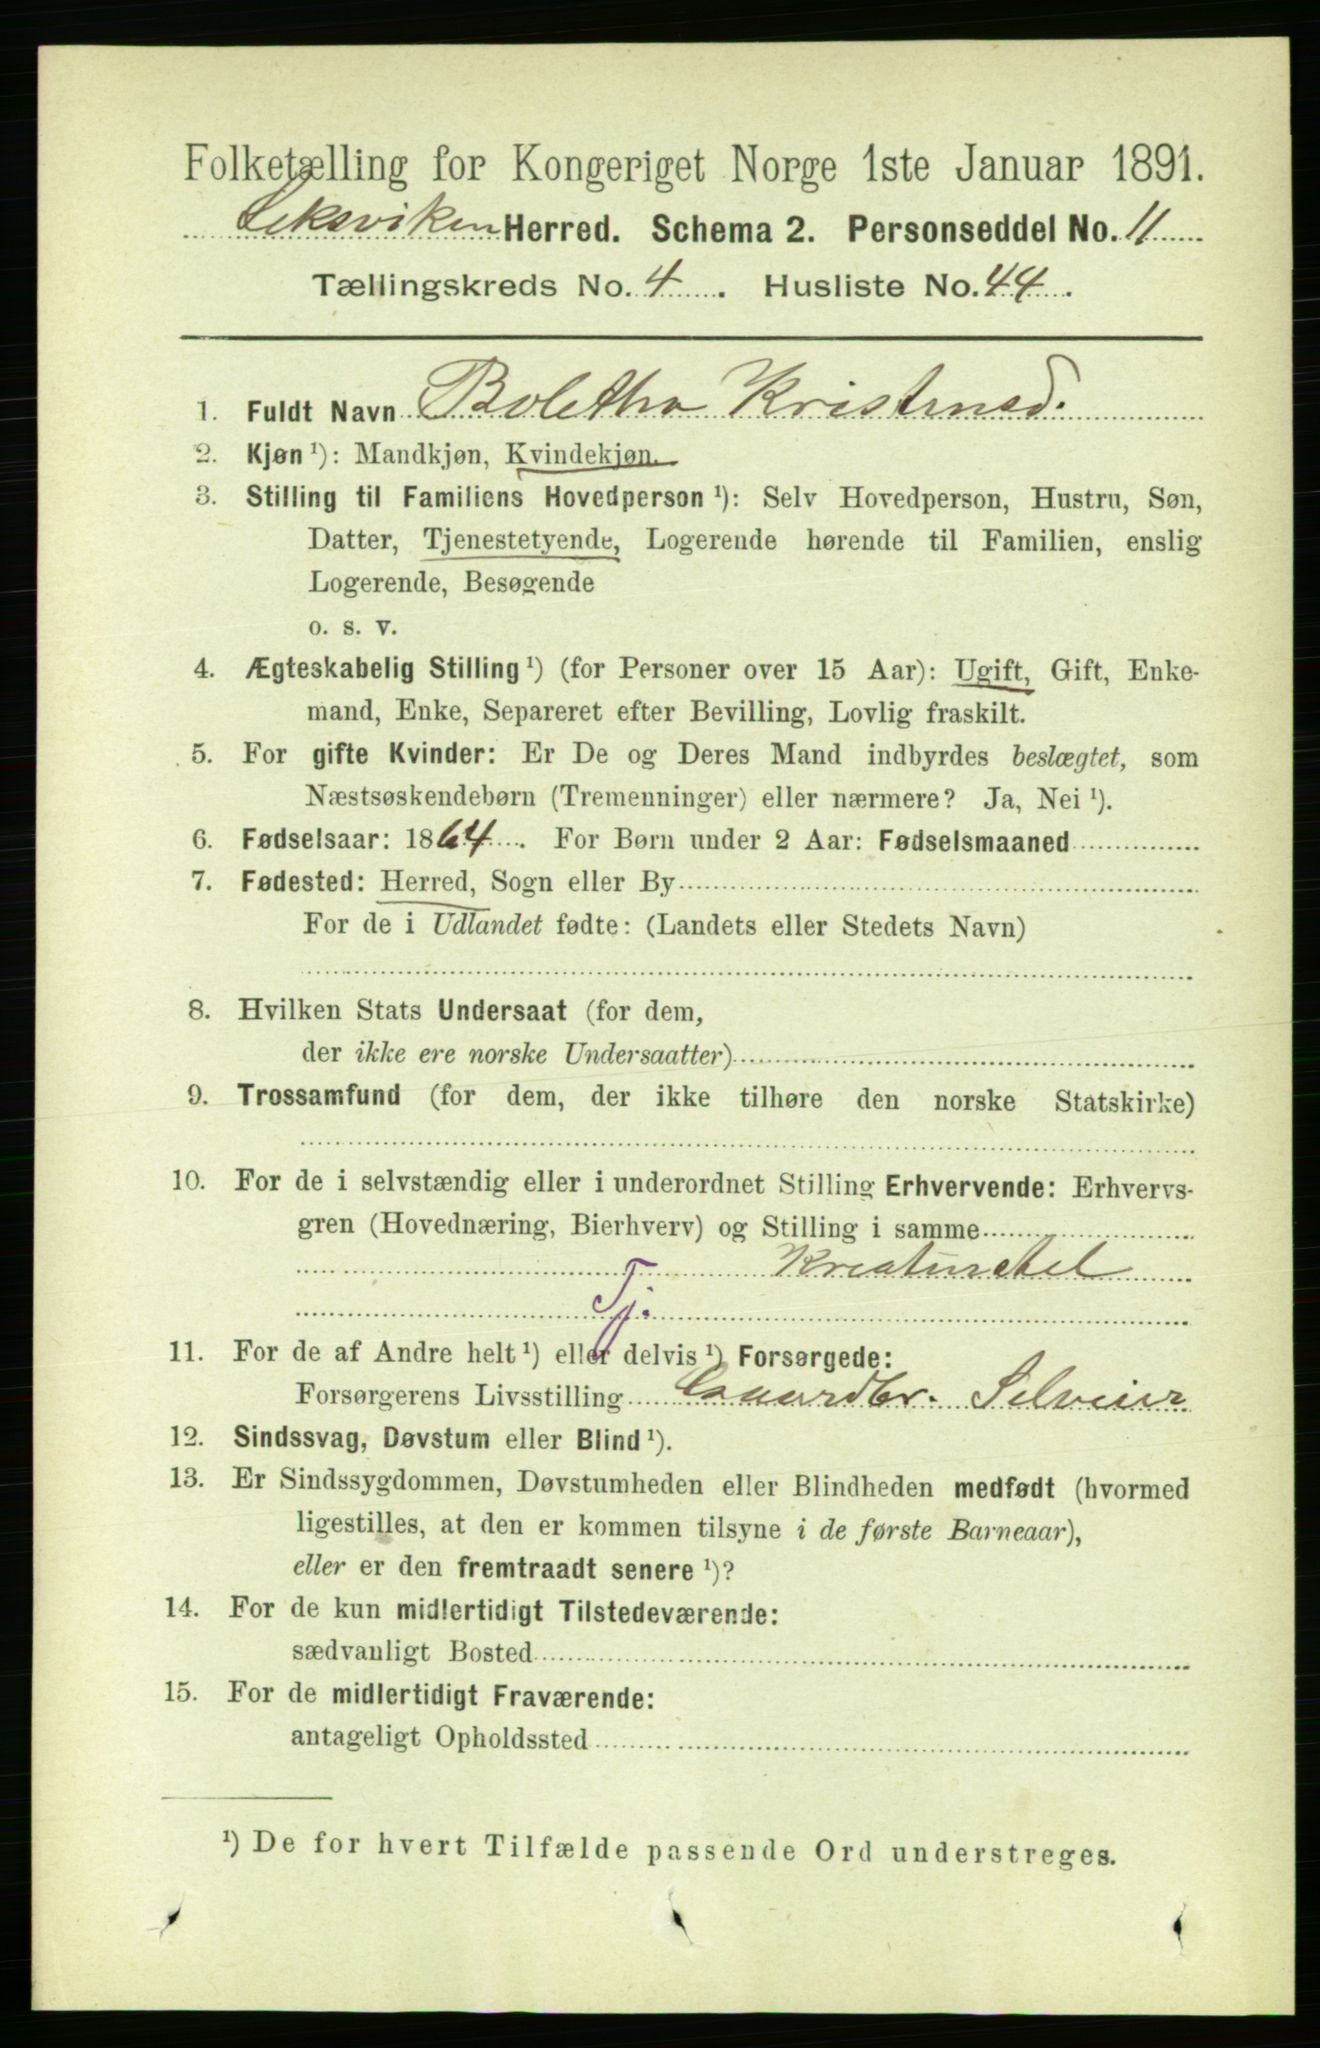 Folketælling for Kongeriget Norge 1ste Januar 1891.
Leksviken Herred. Schema 2. Personseddel No. 11
Tællingskreds No. 4. Husliste No. 44.
1. Fuldt Navn Boletha Kristensd.
2. Kjøn ¹): Mandkjøn, Kvindekjøn.
3. Stilling til Familiens Hovedperson ¹): Selv Hovedperson, Hustru, Søn,
Datter, Tjenestetyende, Logerende hørende til Familien, enslig
Logerende, Besøgende
o. s. v.
4. Ægteskabelig Stilling ¹) (for Personer over 15 Aar): Ugift, Gift, Enke-
mand, Enke, Separeret efter Bevilling, Lovlig fraskilt.
5. For gifte Kvinder: Er De og Deres Mand indbyrdes beslægtet, som
Næstsøskendebørn (Tremenninger) eller nærmere? Ja, Nei ¹).
6. Fødselsaar: 1864. For Børn under 2 Aar: Fødselsmaaned
7. Fødested: Herred, Sogn eller By
For de i Udlandet fødte: (Landets eller Stedets Navn)
8. Hvilken Stats Undersaat (for dem,
der ikke ere norske Undersaatter)
9. Trossamfund (for dem, der ikke tilhøre den norske Statskirke)
10. For de i selvstændig eller i underordnet Stilling Erhvervende: Erhvervs-
gren (Hovednæring, Bierhverv) og Stilling i samme
Kreaturstel
Tj.
11. For de af Andre helt ¹) eller delvis ¹) Forsørgede:
Forsørgerens Livsstilling Gaardbr. Selveier
12. Sindssvag, Døvstum eller Blind ¹).
13. Er Sindssygdommen, Døvstumheden eller Blindheden medfødt (hvormed
ligestilles, at den er kommen tilsyne i de første Barneaar),
eller er den fremtraadt senere ¹)?
14. For de kun midlertidigt Tilstedeværende:
sædvanligt Bosted
15. For de midlertidigt Fraværende:
antageligt Opholdssted
¹) De for hvert Tilfælde passende Ord understreges.